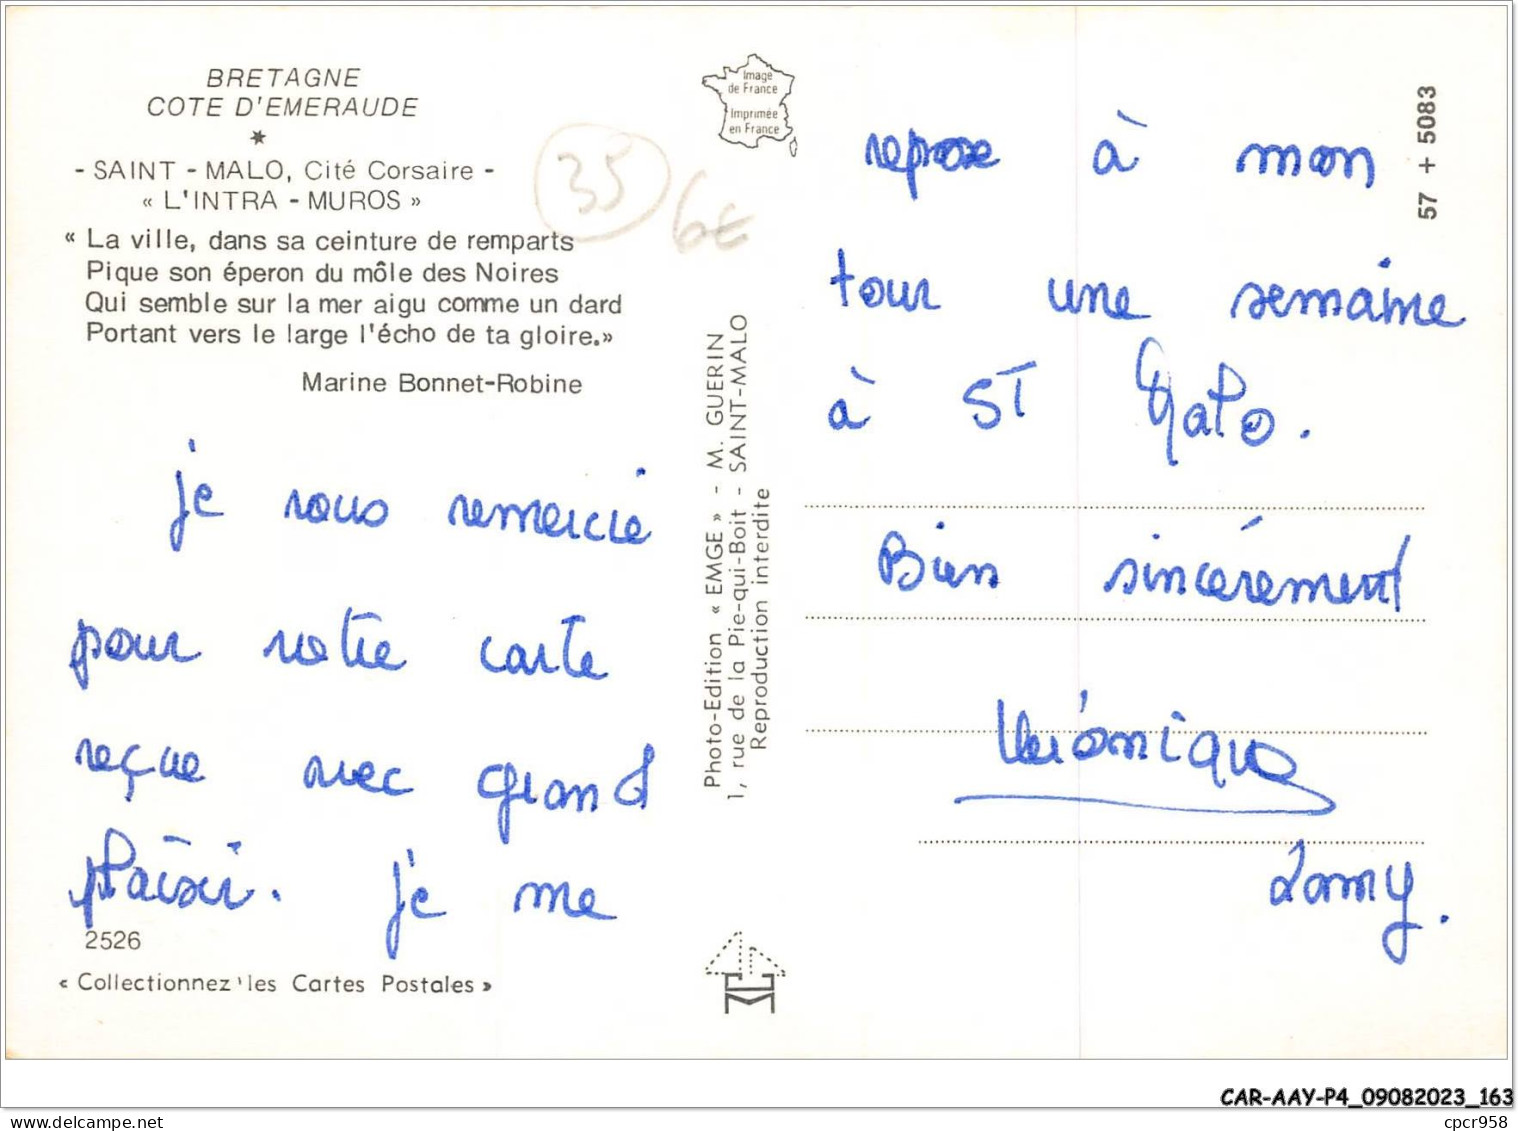 BRETAGNE
COTE D'EMERAUDE
- SAINT - MALO, Cité Corsaire -
« L'INTRA - MUROS »
« La ville, dans sa ceinture de remparts
Pique son éperon du môle des Noires
Qui semble sur la mer aigu comme un dard
Portant vers le large l'écho de ta gloire.»
Marine Bonnet-Robine
35
6€
je vous remercie
pour votre carte
reçue avec grand
plaisir. je me
2526
« Collectionnez les Cartes Postales »
Image
de France
Imprimée
en France
Photo-Edition « EMGE » - M. GUERIN
1, rue de la Pie-qui-Boit - SAINT-MALO
Reproduction interdite
57 + 5083
repose à mon
tour une semaine
à ST Malo.
Bien sincérement
Véronique
Lamy.
CAR-AAY-P4_09082023_163
cpcr958